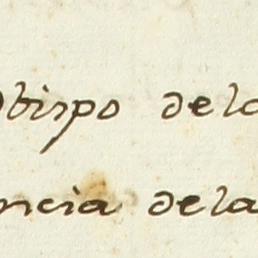 Obispo dela
ncia dela